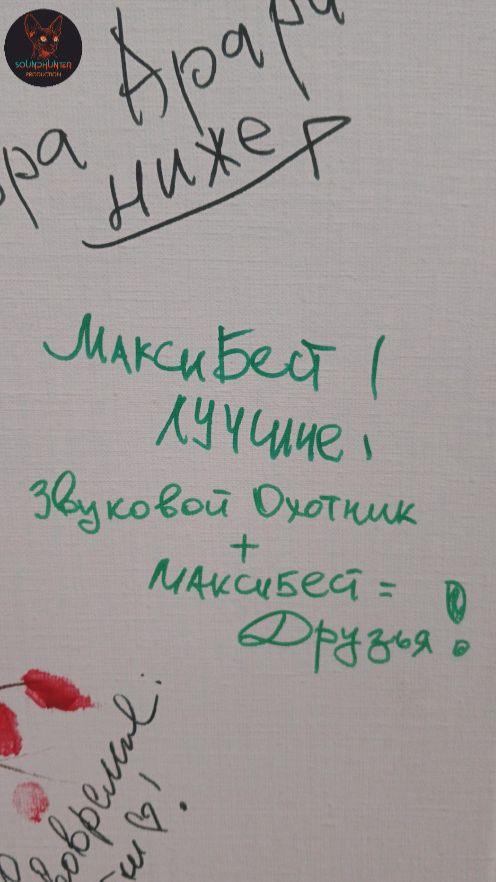 SOUNDHUNTER
PRODUCTION
ниже
МаксиБест!
Лучшие!
Звуковой Охотник
+
МаксиБест =
Друзья!